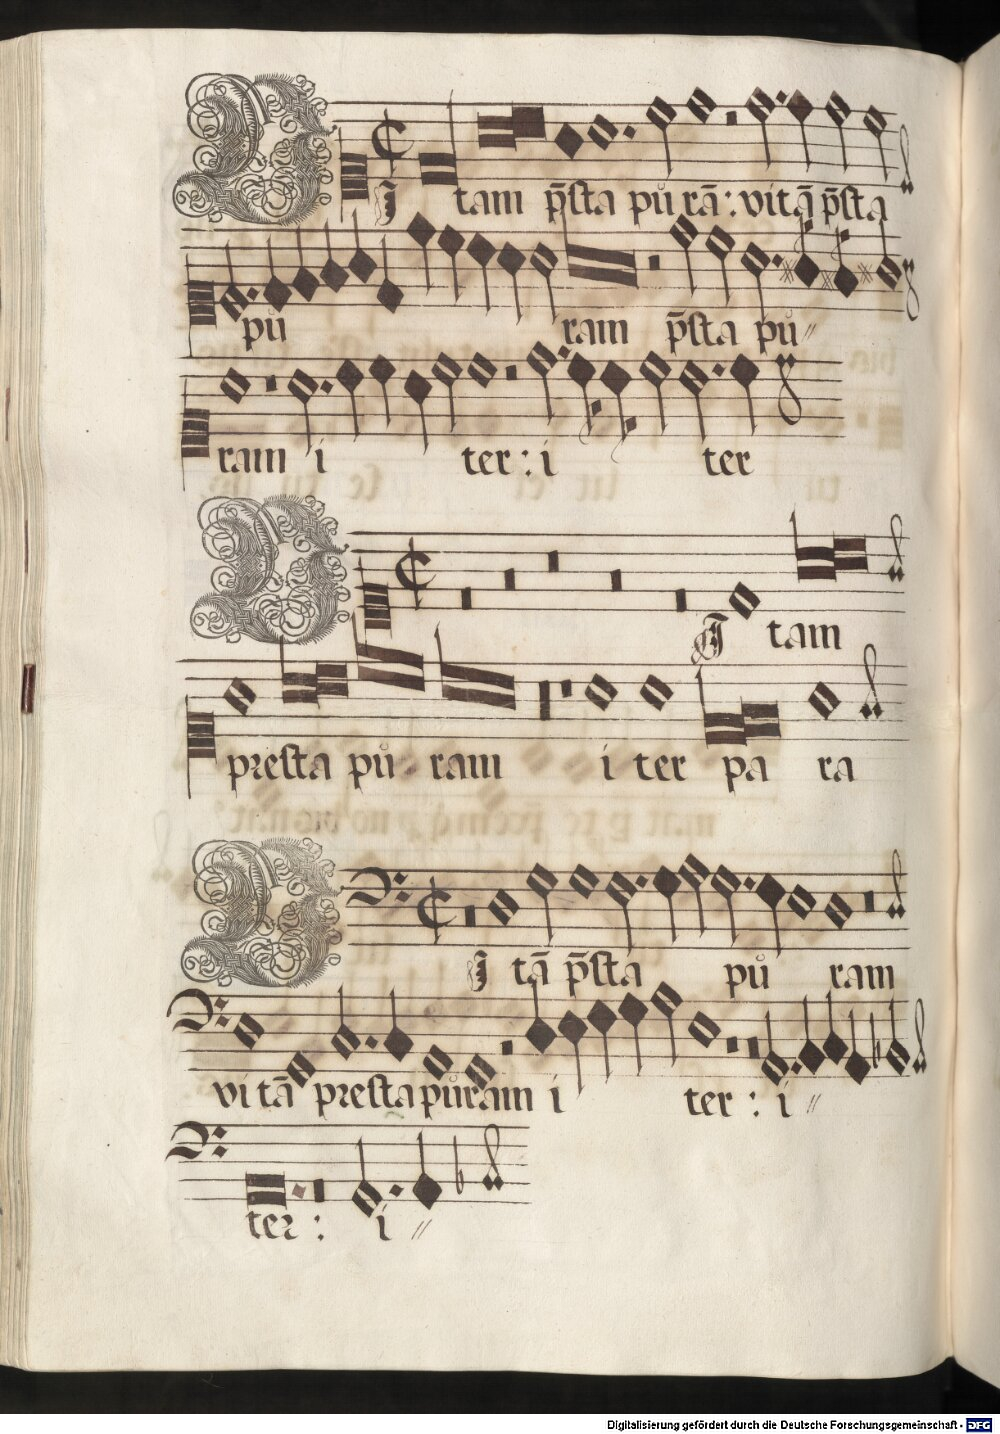 VItam p̄sta pů rā: vi tā p̄sta
pů ram p̄sta pů〃
ram i ter: i ter
VItam
presta pů ram i ter pa ra
VI tā p̄sta pů ram
vi tā presta půram i ter: i〃
ter: i〃
Digitalisierung gefördert durch die Deutsche Forschungsgemeinschaft - DFG